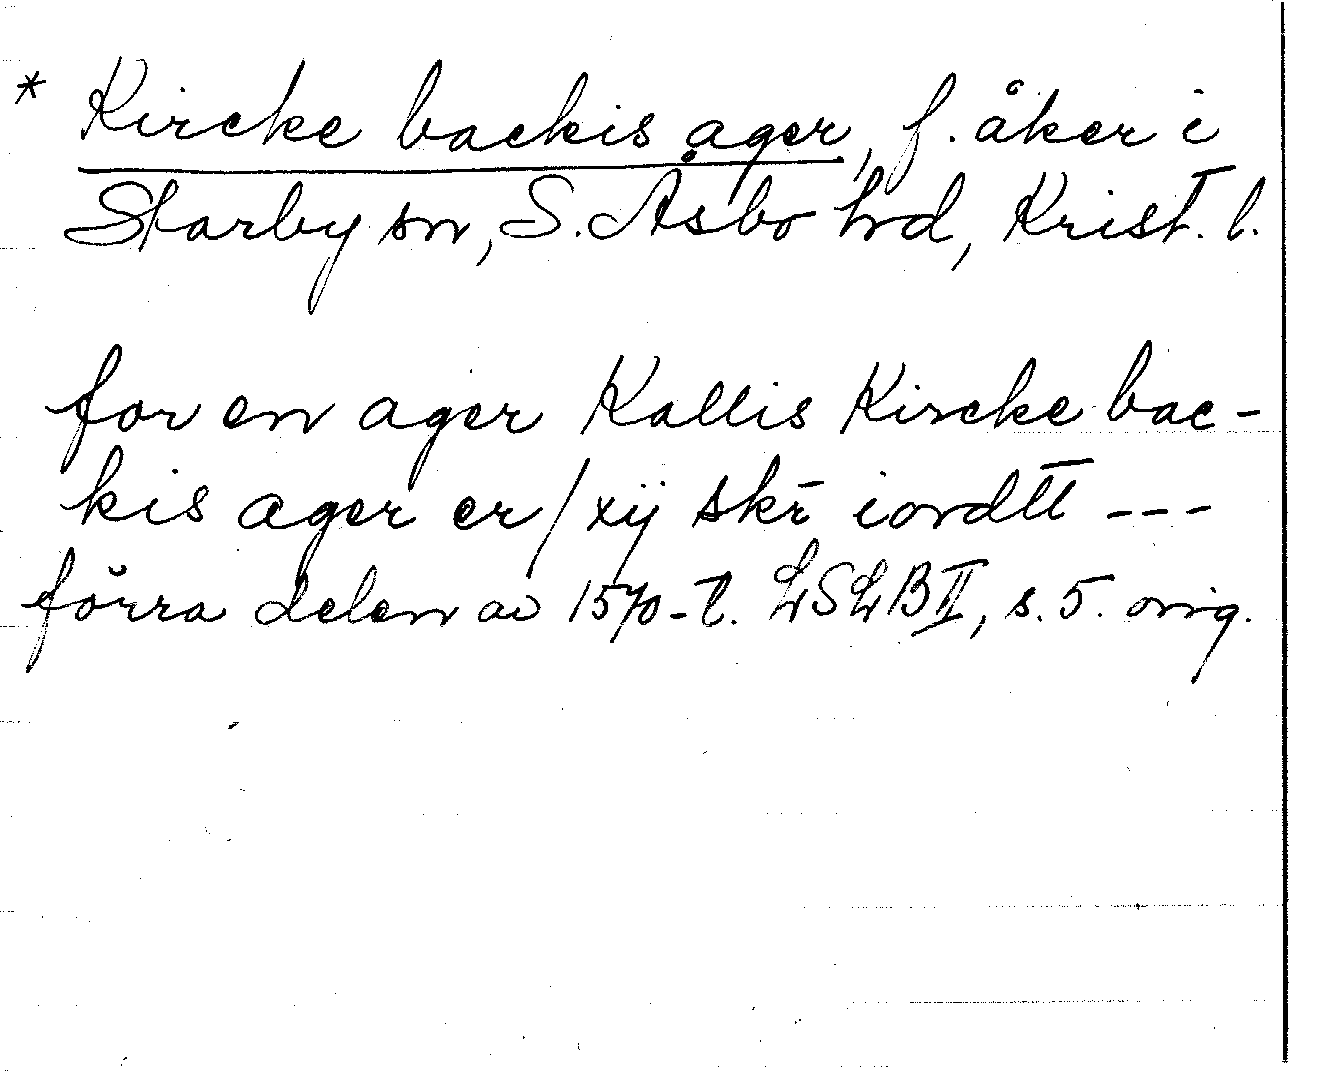 * Kircke backis ager, f. åker i
Starby sn, S. Åsbo hd, Krist. l.
for en ager Kallis Kircke bac-
kis ager er/xij skr̄ iordtt ---
förra delen av 1570-t. LSLB II, s. 5. orig.